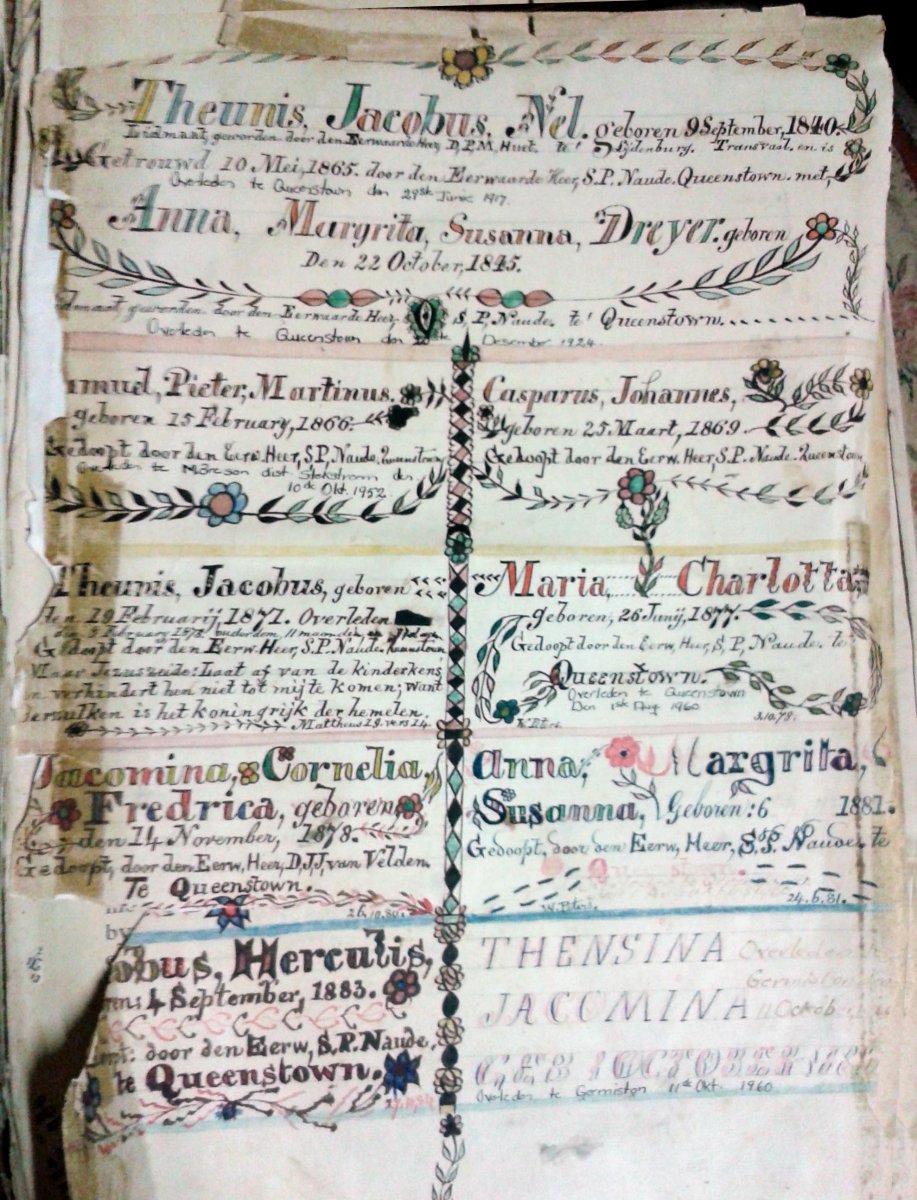 Theunis, Jacobus, Nel. geboren 9 September, 1840.
Lidmaat, geworden door den Eerwaarde Heer, D, P, M, Huet. te' Lijdenburg. Transvaal. en is
Getrouwd 10 Mei, 1865. door den Eerwaarde Heer, S. P. Naude. Queenstown. met,
Overleden te Queenstown den 29ste Junie 1917.
Anna, Margrita, Susanna, Dreyer. geboren
Den 22 October, 1845.
geworden door den Eerwaarde Heer, S, P, Naude. te' Queenstown.
Overleden te Queenstown den Desember 1924.
muel, Pieter, Martinus.
geboren 15 February, 1866.
Gedoopt door den Eerw. Heer, S, P, Naude. Queenstown
Overleden te dist den
10de Okt. 1952.
Casparus, Johannes,
geboren 25 Maart, 1869.
Gedoopt door den Eerw. Heer, S. P. Naude. Queenstown
Theunis, Jacobus, geboren
den 19 Februarij, 1871. Overleden
ouderdom 11 maanden en
Gedoopt door den Eerw. Heer, S. P. Naude. Queenstown
Maar Jezus zeide: Laat af van de kinderkens
en verhindert hen niet tot mij te komen; want
derzulken is het koningrijk der hemelen.
Mattheus 19. vers 14.
Maria, Charlotta,
geboren, 26 Junij, 1877.
Gedoopt door den Eerw, Heer, S, P, Naude. te
Queenstown.
Overleden te Queenstown
Den 1ste Aug 1960
3.10.79.
Jacomina, Cornelia,
Fredrica, geboren
den 14 November, 1878.
Gedoopt, door den Eerw, Heer, D, J, J, van Velden.
Te Queenstown.
26.10.80.
Anna, Margrita,
Susanna, Geboren: 6 1881.
Gedoopt, door den Eerw, Heer, S. P. Naude, te
Queenstown.
24.6.81.
obus, Herculis,
4 September, 1883.
door den Eerw, S. P. Naude,
te Queenstown.
THENSINA Overleden
Germiston
JACOMINA 11 Octob
GEB 1 OCTOBER 188
Overleden te Germiston 11de Okt. 1960